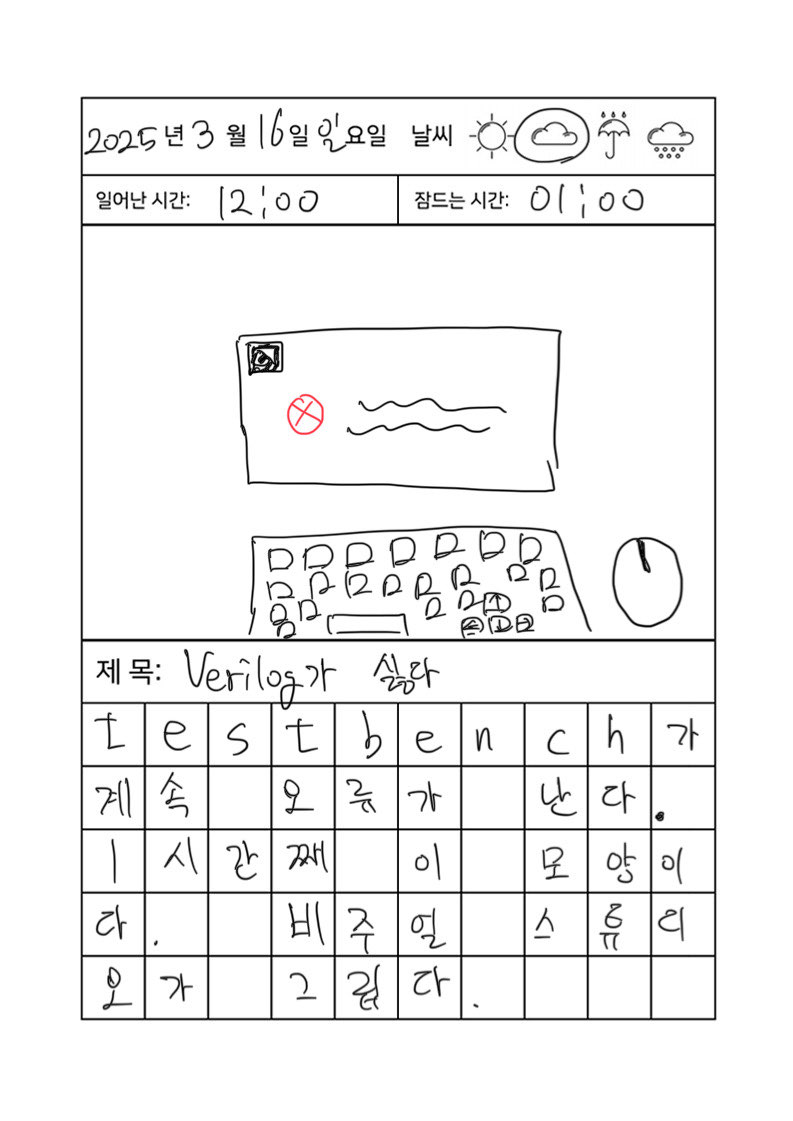 2025년 3월 16일 일요일 날씨
일어난 시간: 12:00 잠드는 시간: 01:00
제 목: Verilog가 싫다
testbench가
계속 오류가 난다.
1시간째 이 모양이
다. 비주얼 스튜디
오가 그립다.